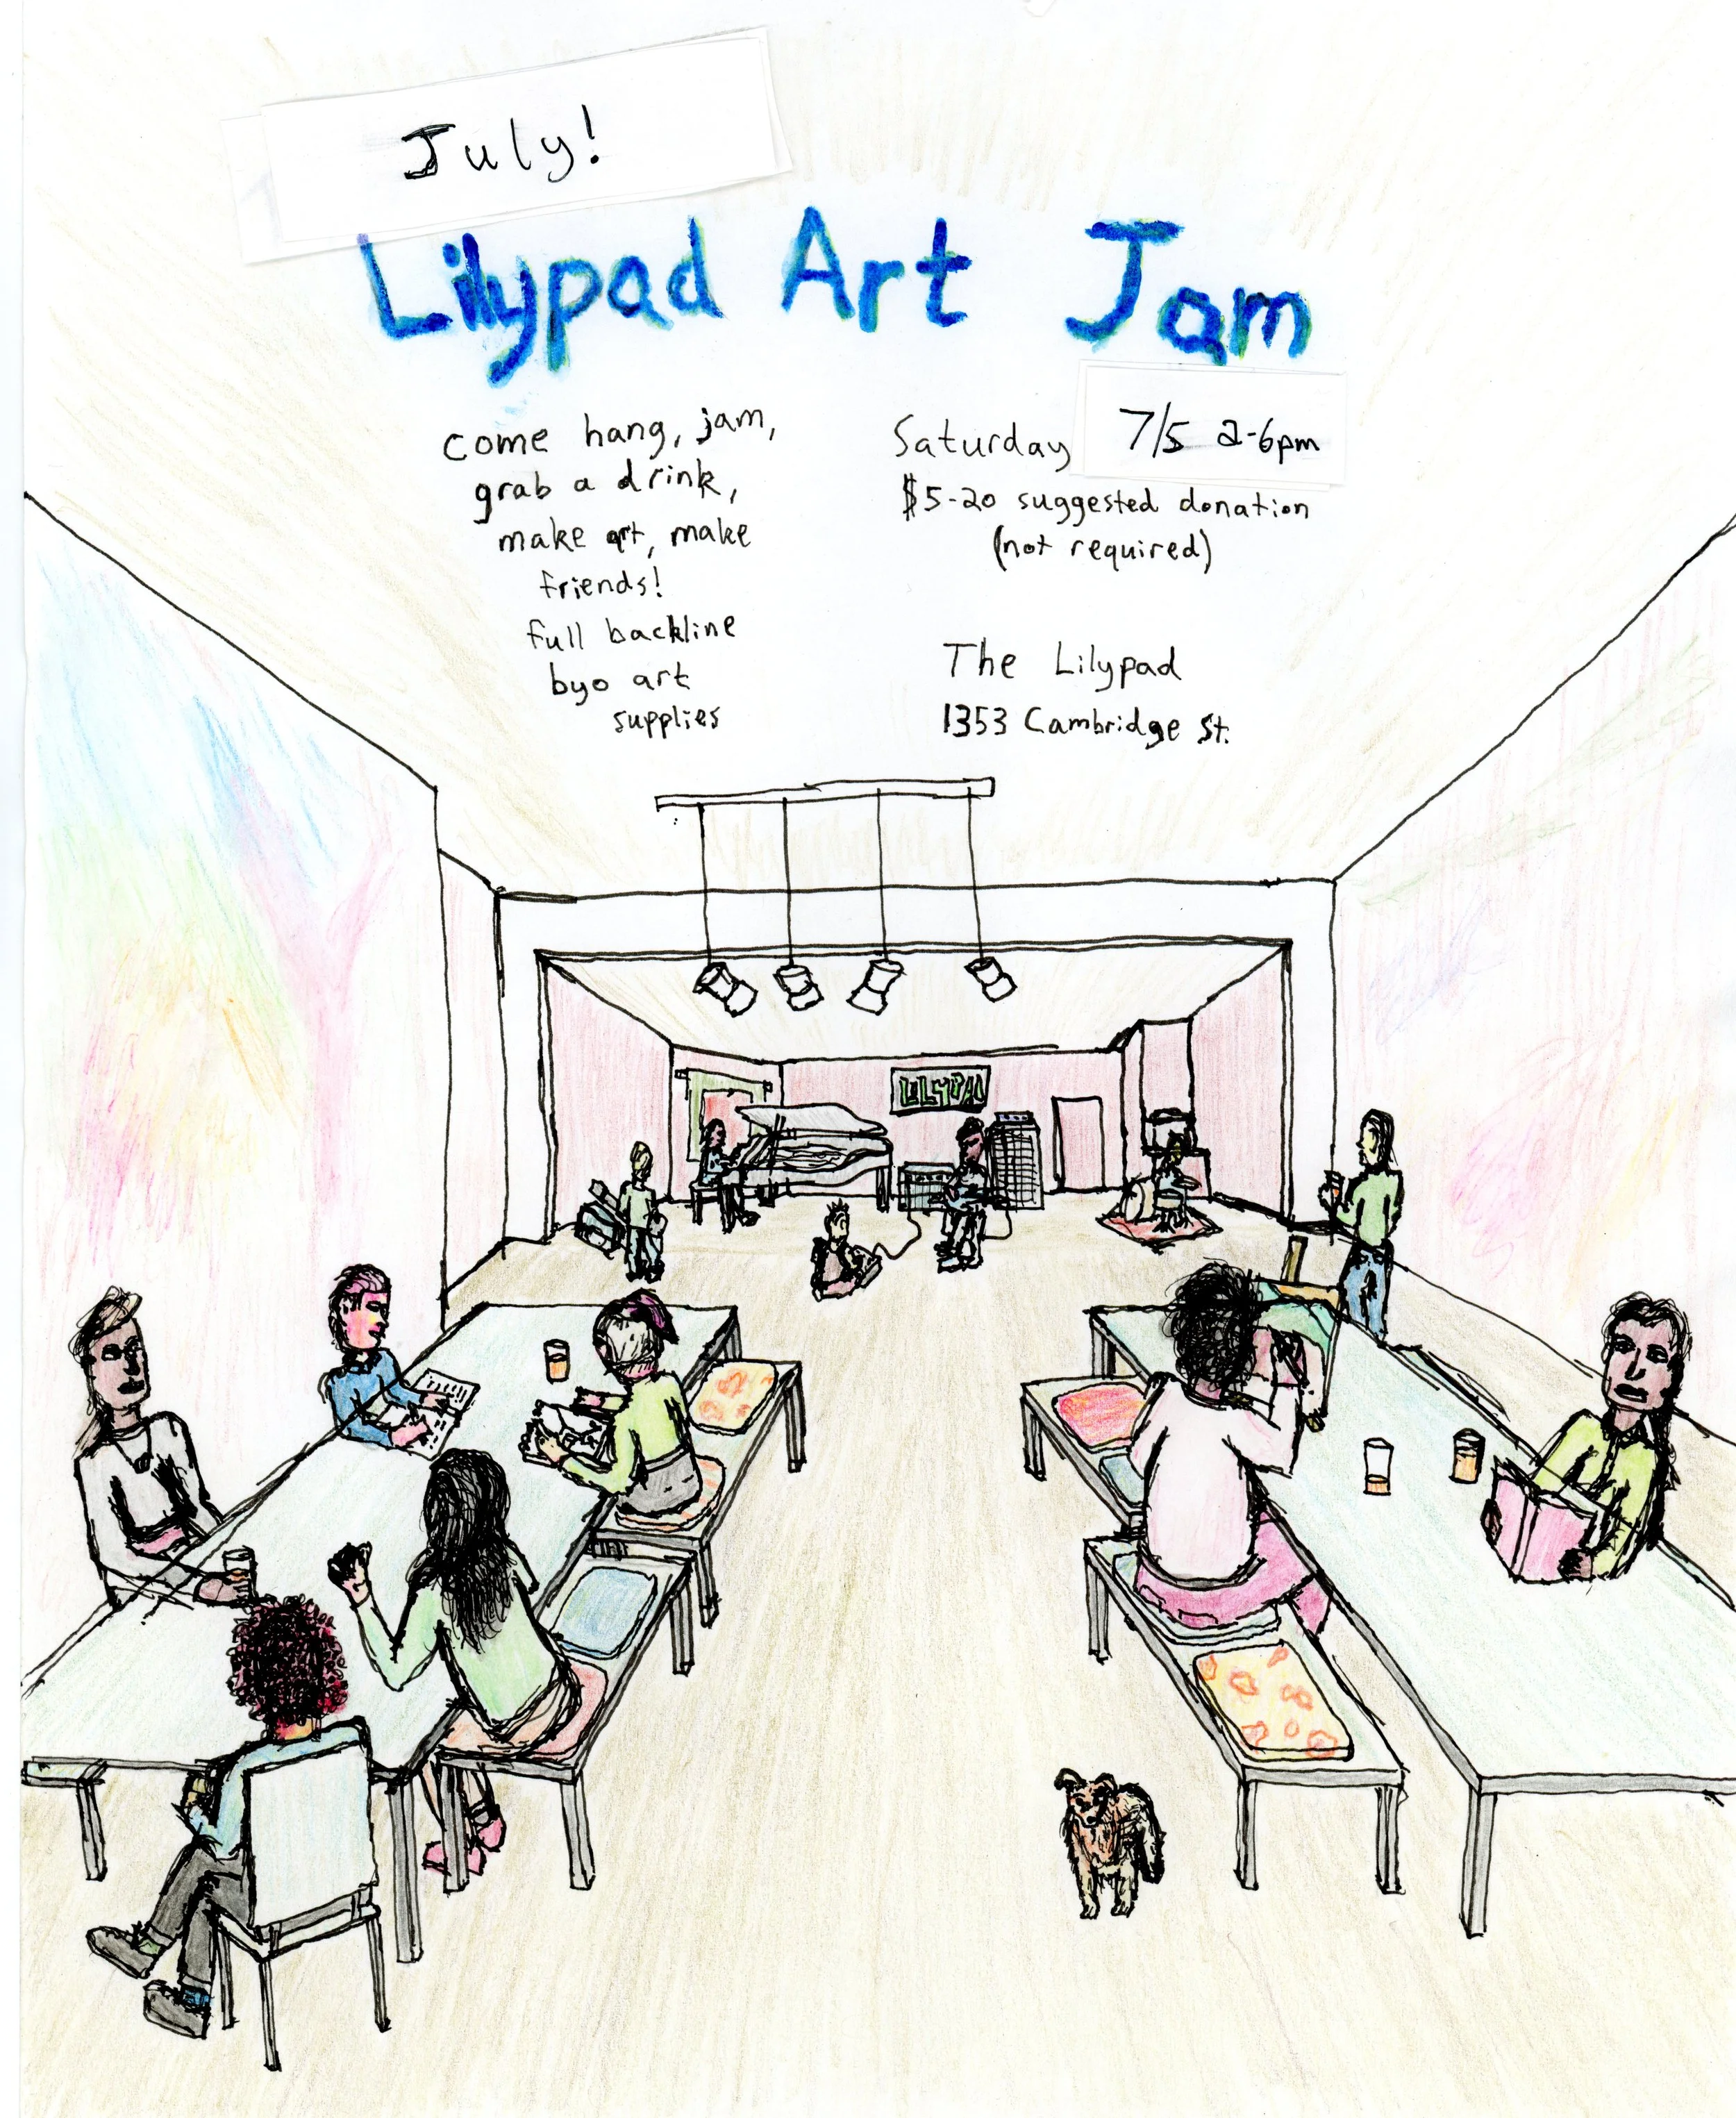 July!
Lilypad Art Jam
come hang, jam,
grab a drink,
make art, make
friends!
full backline
byo art
supplies
Saturday 7/5 2-6pm
$5-20 suggested donation
(not required)
The Lilypad
1353 Cambridge St.
LILYPAD